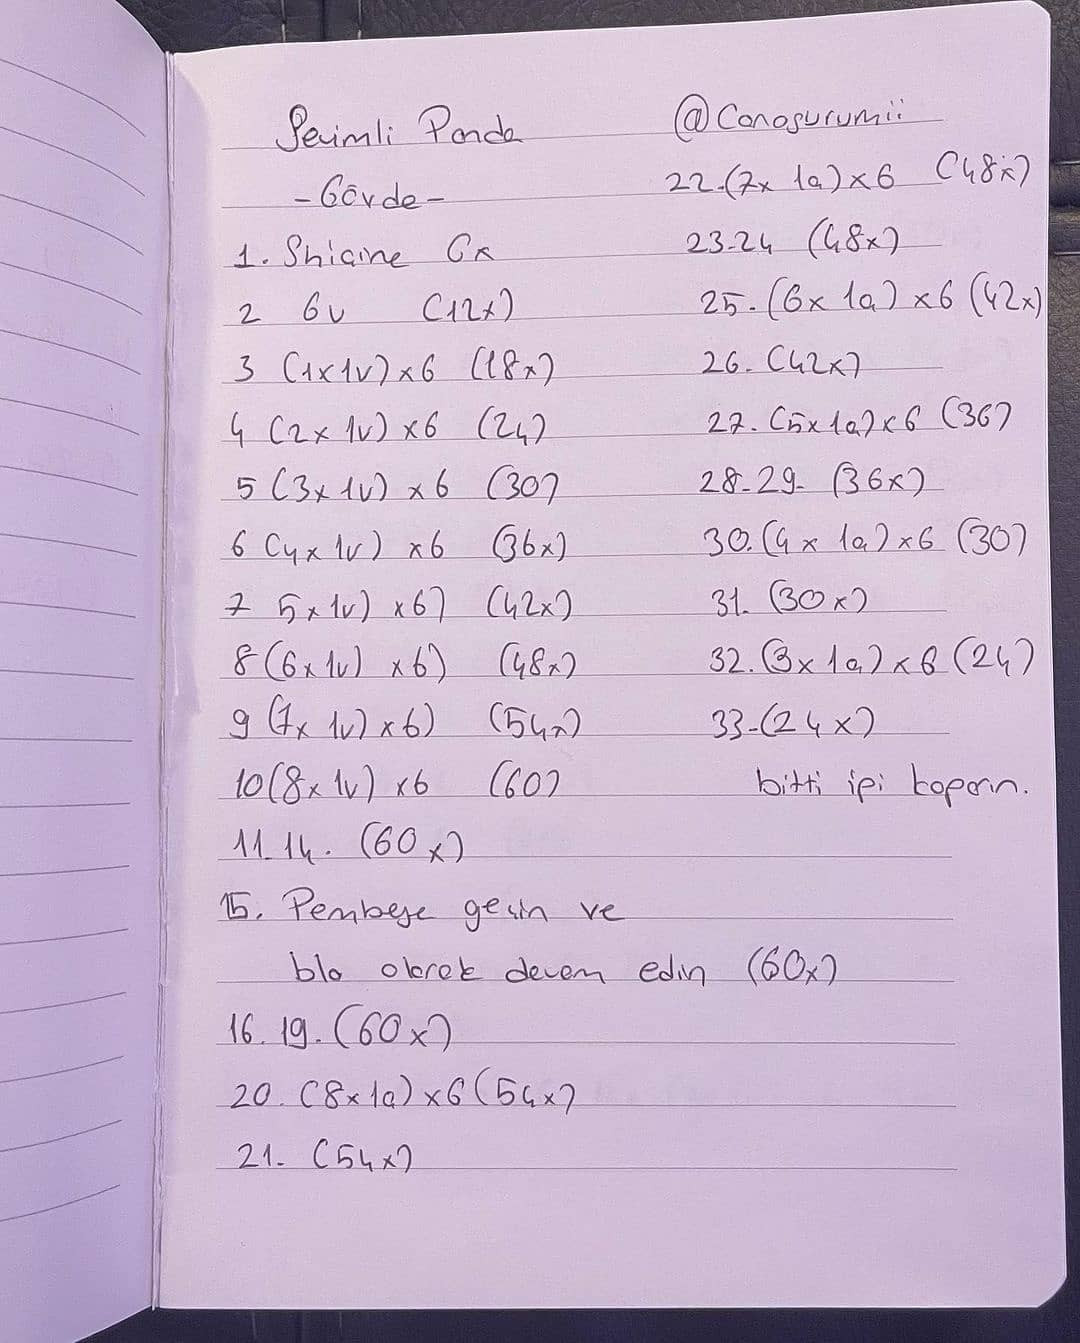 Sevimli Panda
-Gövde-
1. Shigine 6x
2 6v (12x)
3 (1x1v)x6 (18x)
4 (2x 1v) x6 (24)
5 (3x 1v) x6 (30)
6 (4x 1v) x6 (36x)
7 5x1v) x6) (42x)
8 (6x 1v) x6) (48x)
9 (7x 1v) x6) (54x)
10 (8x 1v) x6 (60)
11.14. (60x)
15. Pembeye geçin ve
blo olarak devam edin (60x)
16.19. (60x)
20. (8x1a)x6 (54x)
21. (54x)
@Canagurumii
22-(7x 1a)x6 (48x)
23-24 (48x)
25-(6x 1a)x6 (42x)
26. (42x)
27. (5x1a)x6 (36)
28-29- (36x)
30. (4x 1a)x6 (30)
31. (30x)
32. (3x 1a)x6 (24)
33-(24x)
bitti ipi koparın.